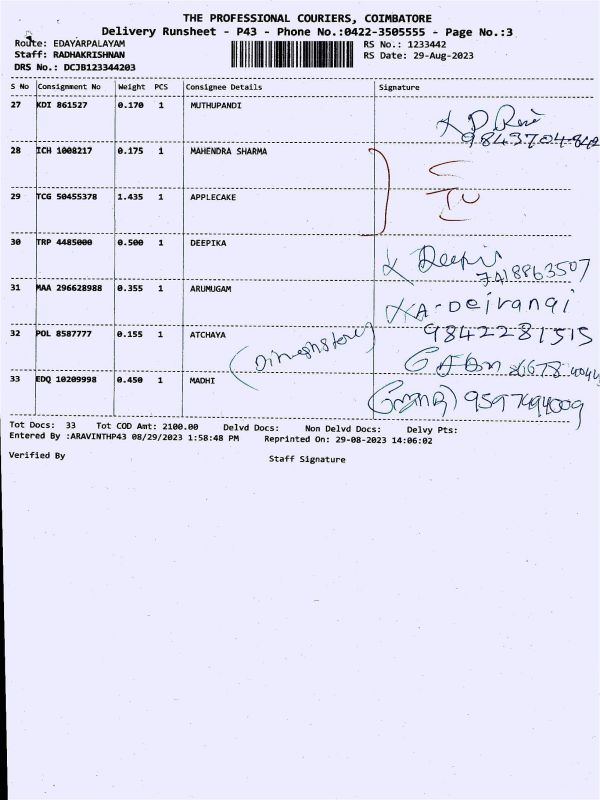 THE PROFESSIONAL COURIERS, COIMBATORE
Delivery Runsheet - P43 - Phone No.:0422-3505555 - Page No.:3
Route: EDAYARPALAYAM
RS No.: 1233442
Staff: RADHAKRISHNAN
RS Date: 29-Aug-2023
DRS No.: DCJB123344203
S No Consignment No Weight PCS Consignee Details Signature
27 KDI 861527 0.170 1 MUTHUPANDI
28 ICH 1008217 0.175 1 MAHENDRA SHARMA
29 TCG 50455378 1.435 1 APPLECAKE
30 TRP 4485000 0.500 1 DEEPIKA
7418863507
31 MAA 296628988 0.355 1 ARUMUGAM
9842281515
32 POL 8587777 0.155 1 ATCHAYA
33 EDQ 10209998 0.450 1 MADHI
Tot Docs: 33 Tot COD Amt: 2100.00 Delvd Docs: Non Delvd Docs: Delvy Pts:
Entered By :ARAVINTHP43 08/29/2023 1:58:48 PM Reprinted On: 29-08-2023 14:06:02
Verified By Staff Signature